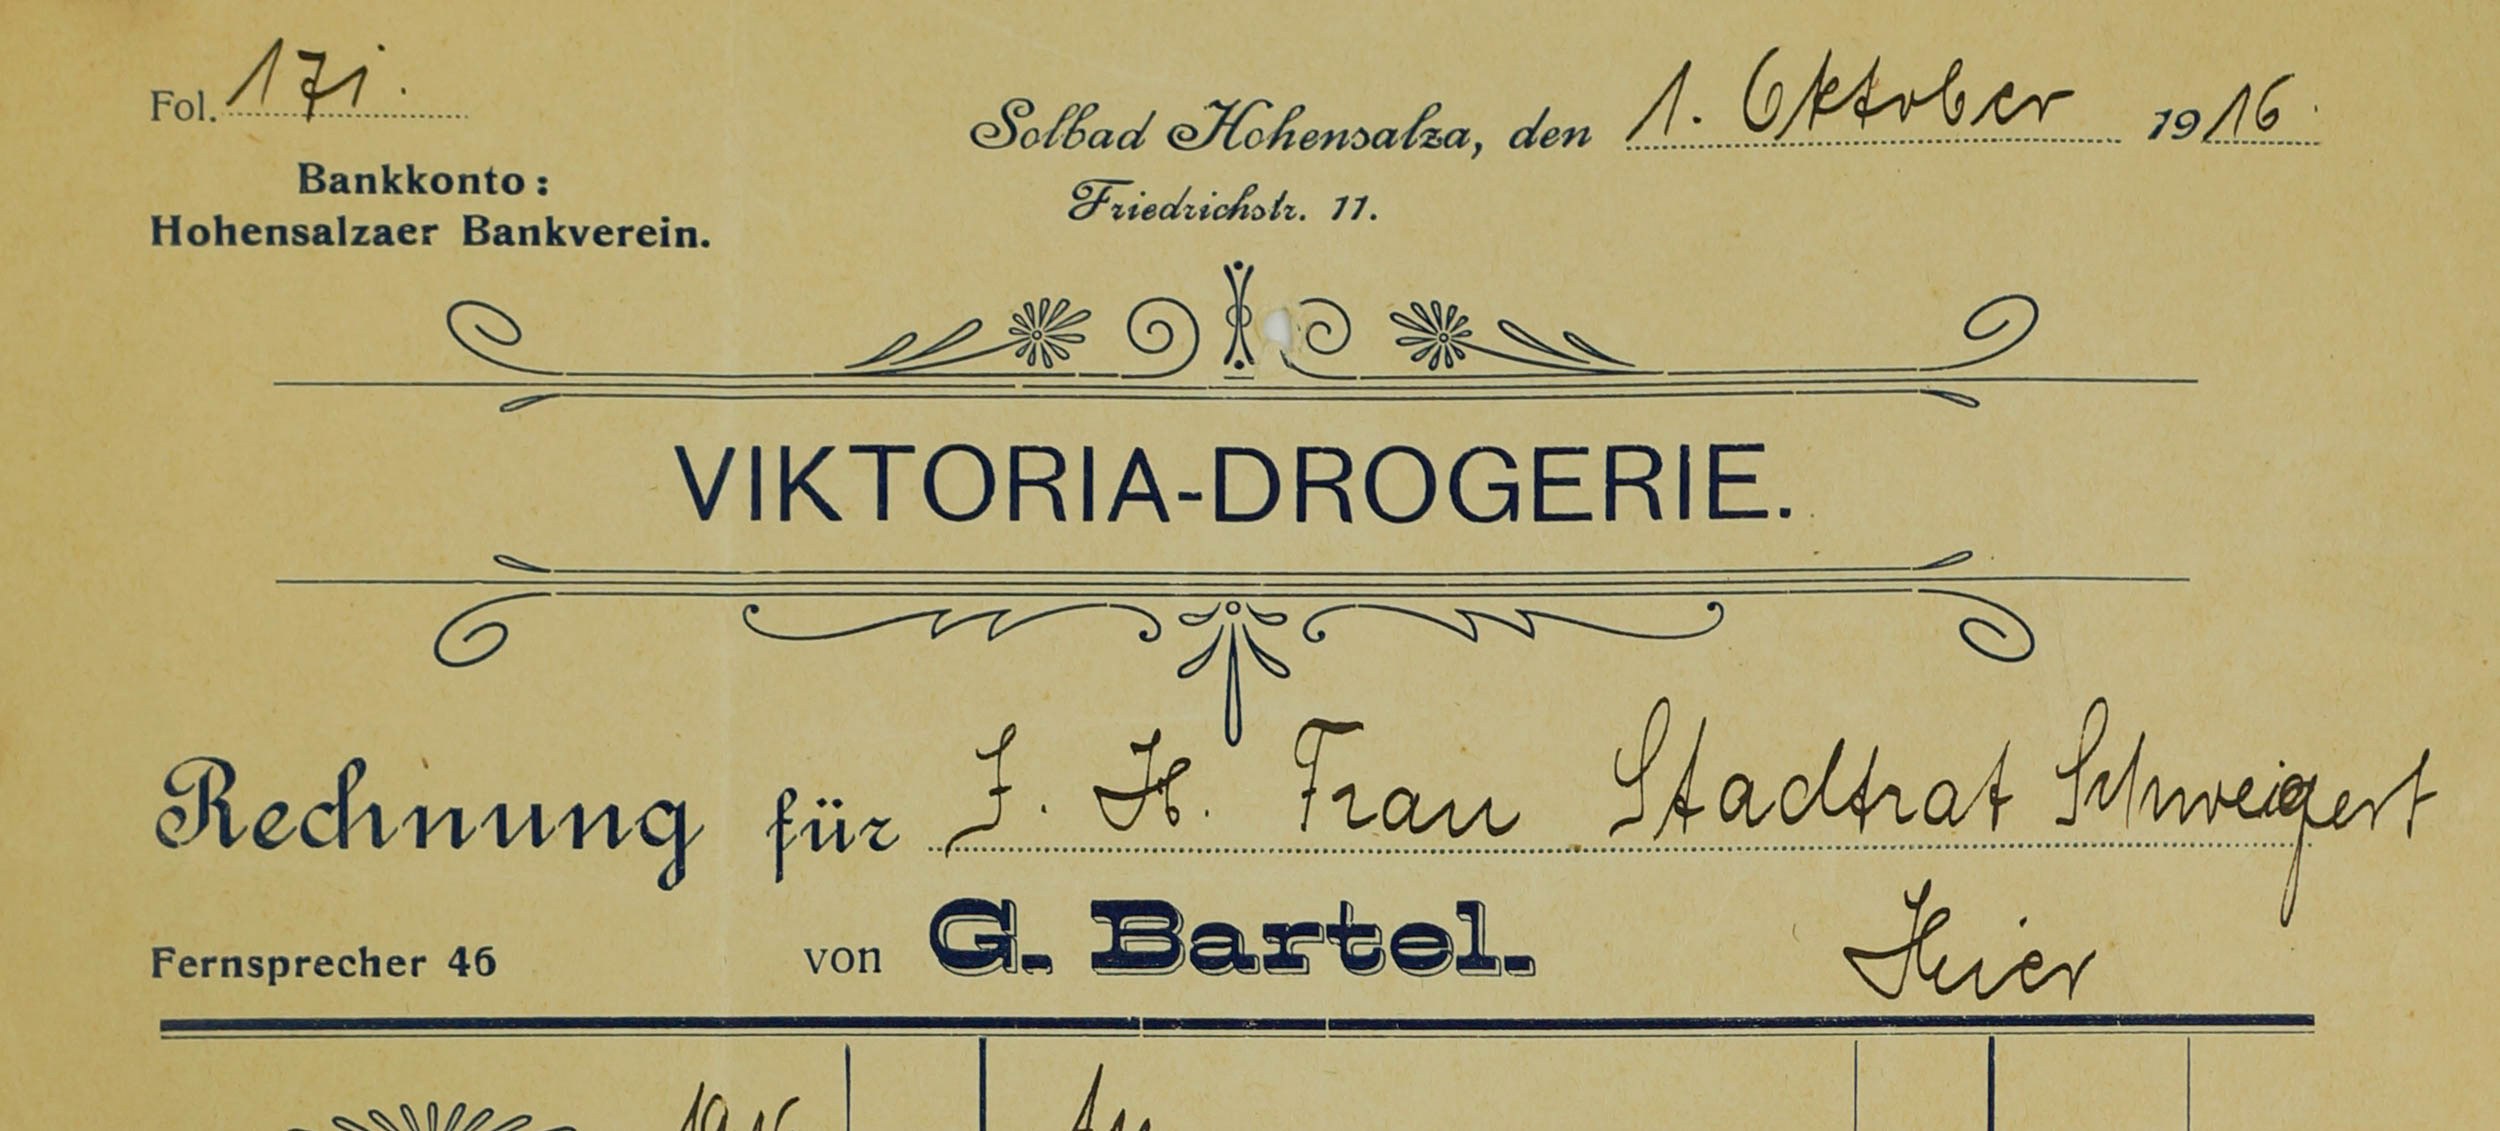 Fol. 171.
Solbad Hohensalza, den 1. Oktober 1916.
Friedrichstr. 11.
Bankkonto:
Hohensalzaer Bankverein.
VIKTORIA-DROGERIE.
Rechnung für J. H. Frau Stadtrat Schweigert
Hier
Fernsprecher 46
von G. Bartel.